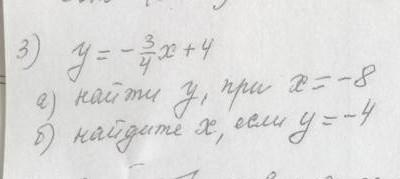 3) y = -3/4 x + 4
а) найти y, при x = -8
б) найдите x, если y = -4